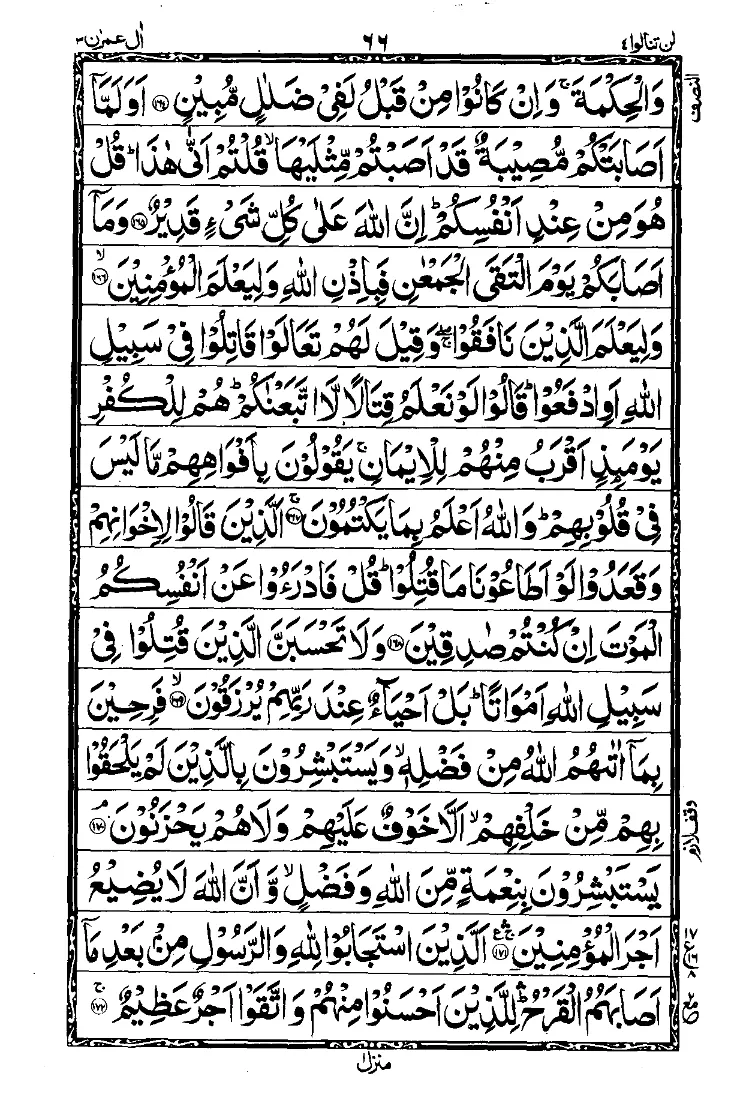 لن تنالوا ٤ ٦٦ اٰل عمرٰن ٣
النصف
وَالْحِكْمَةَ ۚ وَاِنْ كَانُوْا مِنْ قَبْلُ لَفِیْ ضَلٰلٍ مُّبِیْنٍ ۝١٦٤ اَوَلَمَّاۤ
اَصَابَتْكُمْ مُّصِیْبَةٌ قَدْ اَصَبْتُمْ مِّثْلَیْهَا ۙ قُلْتُمْ اَنّٰی هٰذَا ؕ قُلْ
هُوَ مِنْ عِنْدِ اَنْفُسِكُمْ ؕ اِنَّ اللّٰهَ عَلٰی كُلِّ شَیْءٍ قَدِیْرٌ ۝١٦٥ وَمَاۤ
اَصَابَكُمْ یَوْمَ الْتَقَی الْجَمْعٰنِ فَبِاِذْنِ اللّٰهِ وَلِیَعْلَمَ الْمُؤْمِنِیْنَ ۝١٦٦ ۙ
وَلِیَعْلَمَ الَّذِیْنَ نَافَقُوْا ۖۚ وَقِیْلَ لَهُمْ تَعَالَوْا قَاتِلُوْا فِیْ سَبِیْلِ
اللّٰهِ اَوِادْفَعُوْا ؕ قَالُوْا لَوْ نَعْلَمُ قِتَالًا لَّا اتَّبَعْنٰكُمْ ؕ هُمْ لِلْكُفْرِ
یَوْمَىِٕذٍ اَقْرَبُ مِنْهُمْ لِلْاِیْمَانِ ۚ یَقُوْلُوْنَ بِاَفْوَاهِهِمْ مَّا لَیْسَ
فِیْ قُلُوْبِهِمْ ؕ وَاللّٰهُ اَعْلَمُ بِمَا یَكْتُمُوْنَ ۝١٦٧ ۚ اَلَّذِیْنَ قَالُوْا لِاِخْوَانِهِمْ
وَقَعَدُوْا لَوْ اَطَاعُوْنَا مَا قُتِلُوْا ؕ قُلْ فَادْرَءُوْا عَنْ اَنْفُسِكُمُ
الْمَوْتَ اِنْ كُنْتُمْ صٰدِقِیْنَ ۝١٦٨ وَلَا تَحْسَبَنَّ الَّذِیْنَ قُتِلُوْا فِیْ
سَبِیْلِ اللّٰهِ اَمْوَاتًا ؕ بَلْ اَحْیَآءٌ عِنْدَ رَبِّهِمْ یُرْزَقُوْنَ ۝١٦٩ ۙ فَرِحِیْنَ
بِمَاۤ اٰتٰىهُمُ اللّٰهُ مِنْ فَضْلِهٖ ۙ وَیَسْتَبْشِرُوْنَ بِالَّذِیْنَ لَمْ یَلْحَقُوْا
بِهِمْ مِّنْ خَلْفِهِمْ ۙ اَلَّا خَوْفٌ عَلَیْهِمْ وَلَا هُمْ یَحْزَنُوْنَ ۝١٧٠ ۘ
وقف لازم
یَسْتَبْشِرُوْنَ بِنِعْمَةٍ مِّنَ اللّٰهِ وَفَضْلٍ ۙ وَّاَنَّ اللّٰهَ لَا یُضِیْعُ
اَجْرَ الْمُؤْمِنِیْنَ ۝١٧١ اَلَّذِیْنَ اسْتَجَابُوْا لِلّٰهِ وَالرَّسُوْلِ مِنْۢ بَعْدِ مَاۤ
اَصَابَهُمُ الْقَرْحُ ؕ لِلَّذِیْنَ اَحْسَنُوْا مِنْهُمْ وَاتَّقَوْا اَجْرٌ عَظِیْمٌ ۝١٧٢ ۚ
منزل ١